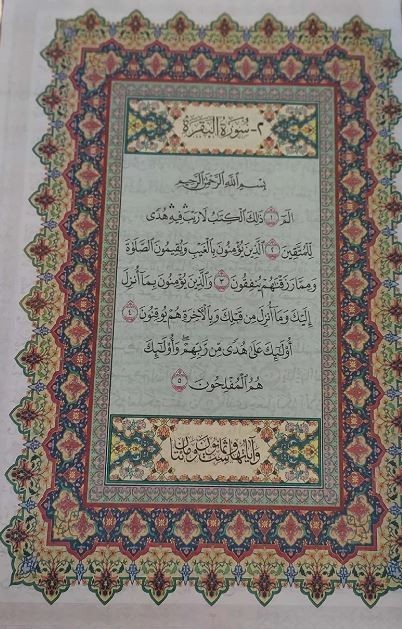 ٢- سُورَةُ البَقَرَةِ
بِسْمِ اللَّهِ الرَّحْمَٰنِ الرَّحِيمِ
الٓمٓ ١ ذَٰلِكَ ٱلْكِتَٰبُ لَا رَيْبَ ۛ فِيهِ ۛ هُدًى
لِّلْمُتَّقِينَ ٢ ٱلَّذِينَ يُؤْمِنُونَ بِٱلْغَيْبِ وَيُقِيمُونَ ٱلصَّلَوٰةَ
وَمِمَّا رَزَقْنَٰهُمْ يُنفِقُونَ ٣ وَٱلَّذِينَ يُؤْمِنُونَ بِمَآ أُنزِلَ
إِلَيْكَ وَمَآ أُنزِلَ مِن قَبْلِكَ وَبِٱلْءَاخِرَةِ هُمْ يُوقِنُونَ ٤
أُو۟لَٰٓئِكَ عَلَىٰ هُدًى مِّن رَّبِّهِمْ ۖ وَأُو۟لَٰٓئِكَ
هُمُ ٱلْمُفْلِحُونَ ٥
وَآيَاتُهَا سِتٌّ وَثَمَانُونَ وَمِائَتَانِ